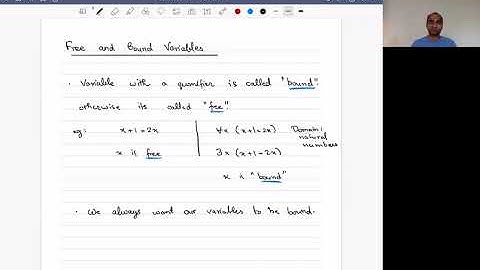 Free and Bound Variables
· Variable with a quantifier is called "bound".
otherwise its called "free".
eg: x+1=2x ∀x (x+1=2x) Domain: natural numbers
x is free ∃x (x+1=2x)
x is "bound"
· We always want our variables to be bound.